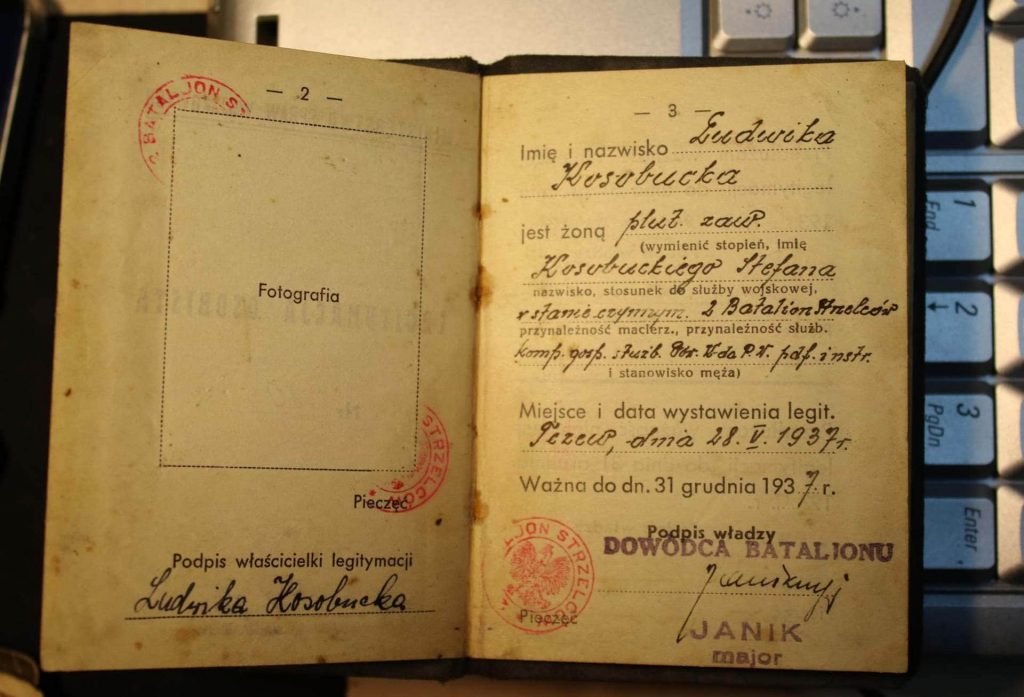 — 2 —
BATALJON ST
Fotografia
STRZELCÓW
Pieczęć
Podpis właścicielki legitymacji
Ludwika Kosobucka
— 3 —
Imię i nazwisko Ludwika
Kosobucka
jest żoną plut. zaw.
(wymienić stopień, imię
Kosobuckiego Stefana
nazwisko, stosunek do służby wojskowej,
w stanie czynnym. 2 Batalion Strzelców
przynależność macierz., przynależność służb.
komp. gosp. służb. P.W. instr.
i stanowisko męża)
Miejsce i data wystawienia legit.
Tczew, dnia 28. V. 1937r.
Ważna do dn. 31 grudnia 1937 r.
Podpis władzy
DOWÓDCA BATALJONU
JON STRZELCÓW
Pieczęć
JANIK
major
1
End
2
↓
3
PgDn
Enter